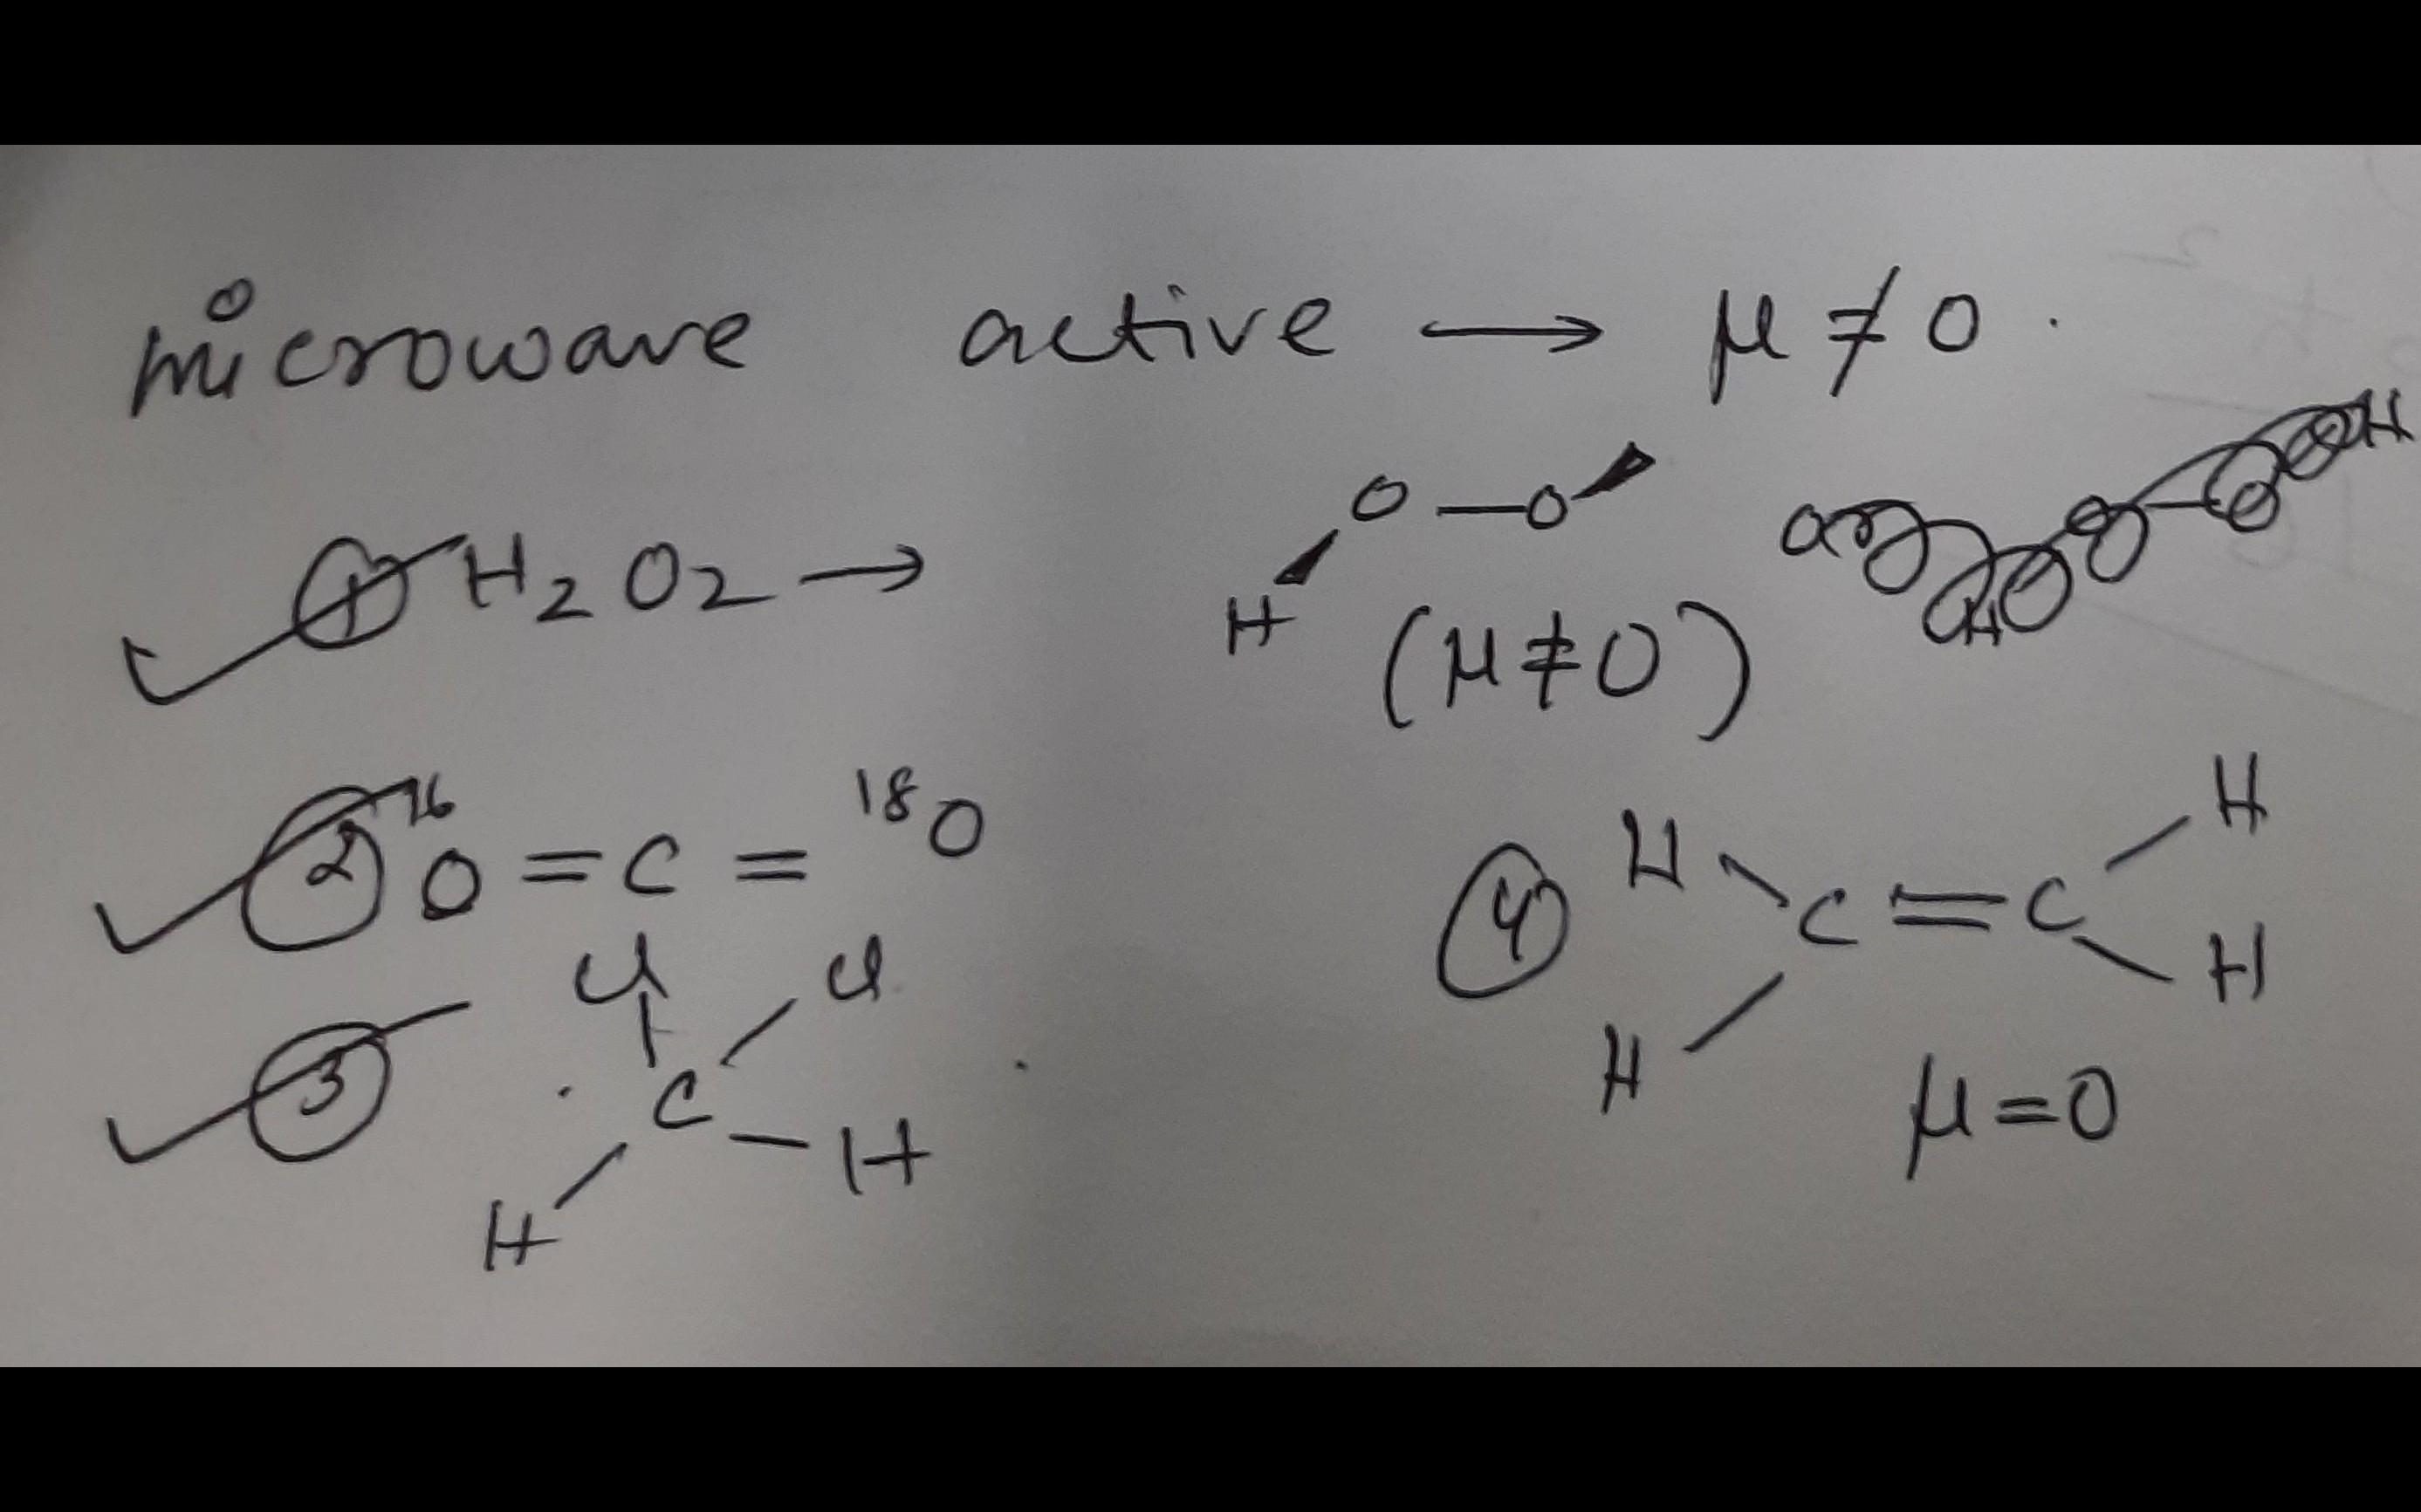 microwave active → μ ≠ 0.
① H2O2 → O — O
H
(μ ≠ 0)
H
H
② 16O = C = 18O
③ Cl Cl
C
H — H
④ H H
C = C
H H
μ = 0